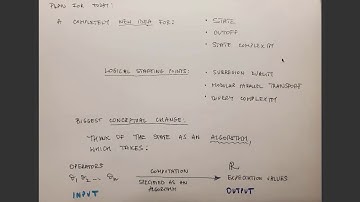 PLAN FOR TODAY:
A COMPLETELY NEW IDEA FOR: • STATE
• CUTOFF
• STATE COMPLEXITY
LOGICAL STARTING POINTS: • SUBREGION DUALITY
• MODULAR PARALLEL TRANSPORT
• QUERY COMPLEXITY
BIGGEST CONCEPTUAL CHANGE:
THINK OF THE STATE AS AN ALGORITHM,
WHICH TAKES:
OPERATORS COMPUTATION ℝ
SPECIFIED AS AN EXPECTATION VALUES
ALGORITHM
INPUT OUTPUT